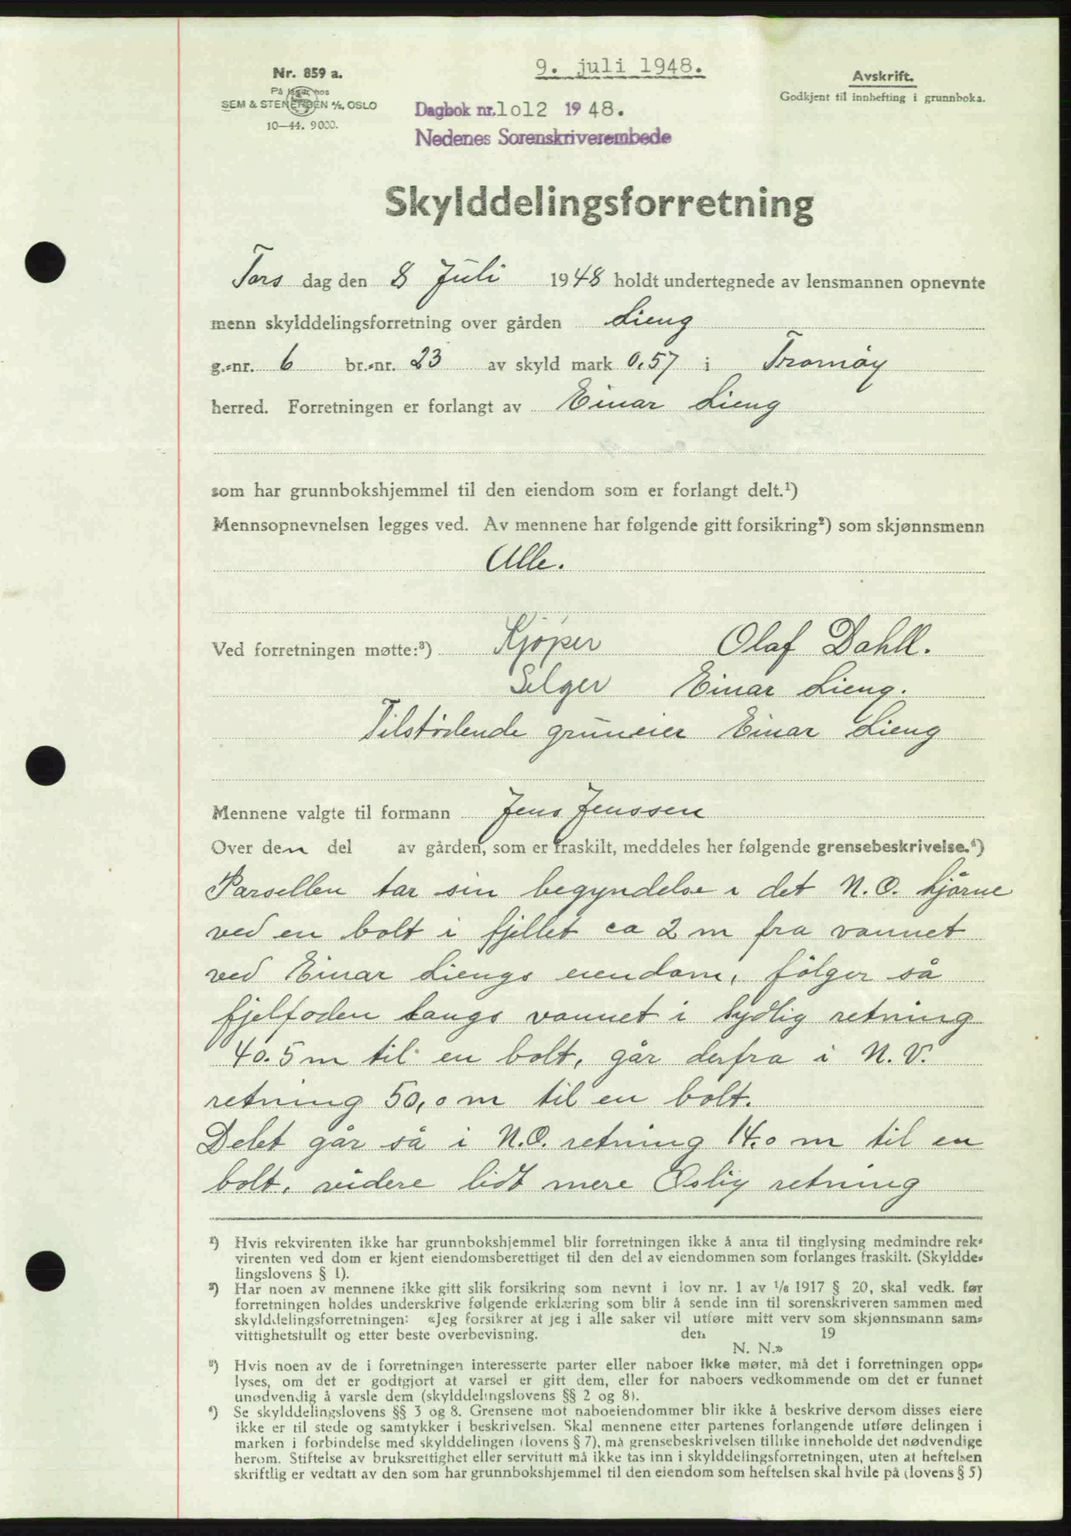 Nr. 859 a.
På lager hos
SEM & STENERSEN A/S, OSLO
10—44. 9000.
9. juli 1948.
Dagbok nr. 1012 1948.
Nedenes Sorenskriverembede
Avskrift.
Godkjent til innhefting i grunnboka.
Skylddelingsforretning
Tors dag den 8 Juli 1948 holdt undertegnede av lensmannen opnevnte
menn skylddelingsforretning over gården Lieng
g.-nr. 6 br.-nr. 23 av skyld mark 0.57 i Tromöy
herred. Forretningen er forlangt av Einar Lieng
som har grunnbokshjemmel til den eiendom som er forlangt delt.¹)
Mennsopnevnelsen legges ved. Av mennene har følgende gitt forsikring²) som skjønnsmenn
Alle.
Ved forretningen møtte:³) Kjöper Olaf Dahll.
Selger Einar Lieng.
Tilstödende gruneier Einar Lieng
Mennene valgte til formann Jens Jenssen
Over den del av gården, som er fraskilt, meddeles her følgende grensebeskrivelse.⁴)
Parsellen tar sin begyndelse i det N.O. hjörne
ved en bolt i fjellet ca 2 m fra vannet
ved Einar Liengs eiendom, fölger så
fjelfoden langs vannet i sydlig retning
40.5 m til en bolt, går derfra i N.V.
retning 50,0 m til en bolt.
Delet går så i N.O. retning 14.0 m til en
bolt, videre lidt mere Östlig retning
¹) Hvis rekvirenten ikke har grunnbokshjemmel blir forretningen ikke å anta til tinglysing medmindre rek-
virenten ved dom er kjent eiendomsberettiget til den del av eiendommen som forlanges fraskilt. (Skyldde-
lingslovens § 1).
²) Har noen av mennene ikke gitt slik forsikring som nevnt i lov nr. 1 av 1/8 1917 § 20, skal vedk. før
forretningen holdes underskrive følgende erklæring som blir å sende inn til sorenskriveren sammen med
skylddelingsforretningen: «Jeg forsikrer at jeg i alle saker vil utføre mitt verv som skjønnsmann sam-
vittighetsfullt og etter beste overbevisning. den 19
N. N.»
³) Hvis noen av de i forretningen interesserte parter eller naboer ikke møter, må det i forretningen opp-
lyses, om det er godtgjort at varsel er gitt dem, eller for naboers vedkommende om det er funnet
unødvendig å varsle dem (skylddelingslovens §§ 2 og 8).
⁴) Se skylddelingslovens §§ 3 og 8. Grensene mot naboeiendommer blir ikke å beskrive dersom disses eiere
ikke er til stede og samtykker i beskrivelsen. Skal mennene etter partenes forlangende utføre delingen i
marken i forbindelse med skylddelingen (lovens § 7), må grensebeskrivelsen tillike inneholde det nødvendige
herom. Stiftelse av bruksrettighet eller servitutt må ikke tas inn i skylddelingsforretningen, uten at heftelsen
skriftlig er vedtatt av den som har grunnbokshjemmel til den eiendom som heftelsen skal hvile på (lovens § 5)